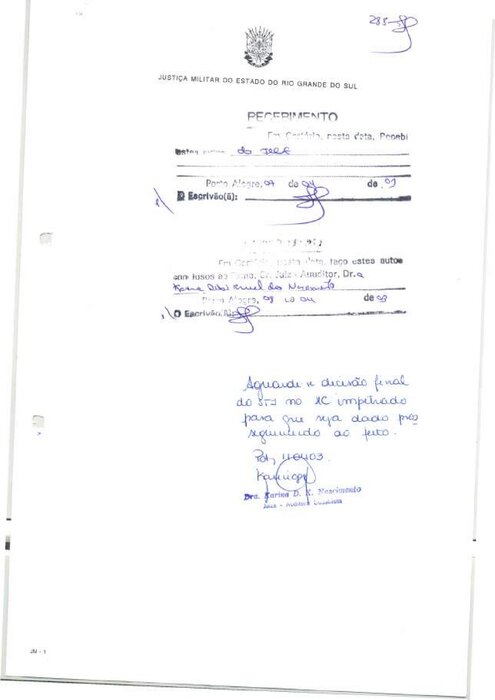 285
JUSTIÇA MILITAR DO ESTADO DO RIO GRANDE DO SUL
RECEBIMENTO
Em Cartório, nesta data, Recebi
estes autos do
Porto Alegre, 07 de 04 de 03
O Escrivão(ã):
Em Cartório, nesta data, faço estes autos
con lusos ao Exmo. Dr. Juiz - Auditor, Dr.a
Porto Alegre, 08 de 04 de 03
O Escrivão(ã)
Aguarde-se decisão final
do STJ no HC impetrado
para que seja dado pros
seguimento ao feito.
Poa, 110403.
Dra. Karina D. K. Nascimento
JM - 1